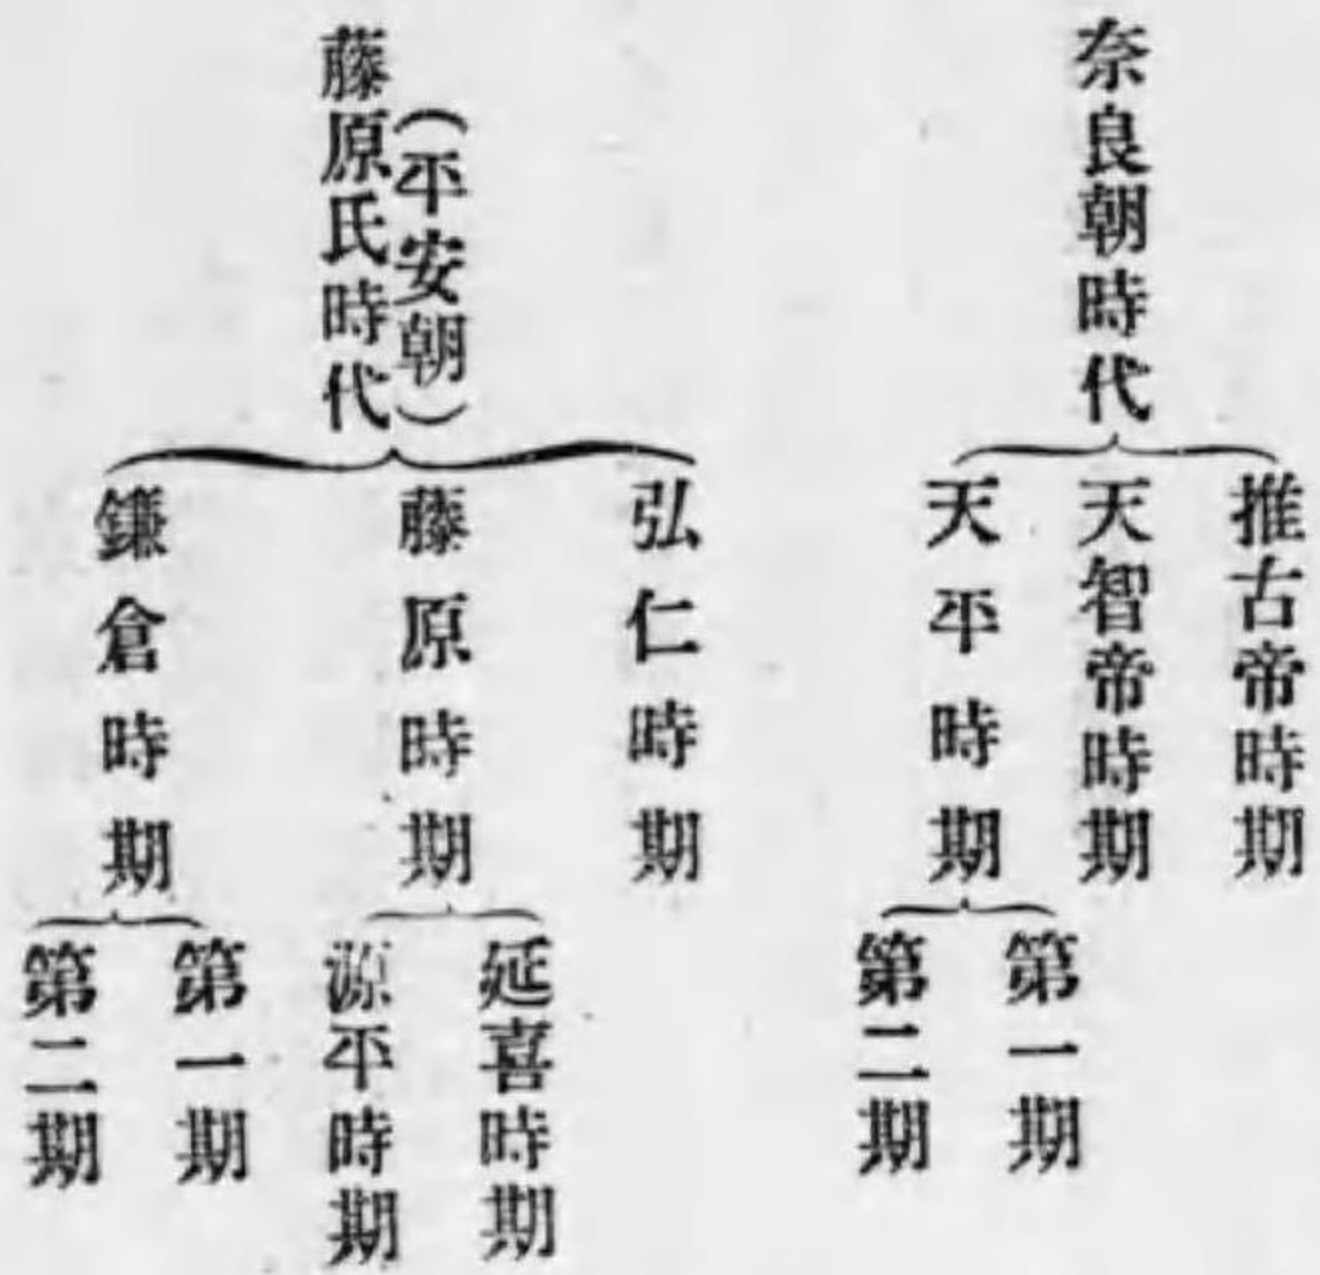 奈良朝時代
推古帝時期
天智帝時期
天平時期
第一期
第二期
(平安朝)
藤原氏時代
弘仁時期
藤原時期
延喜時期
源平時期
鎌倉時期
第一期
第二期